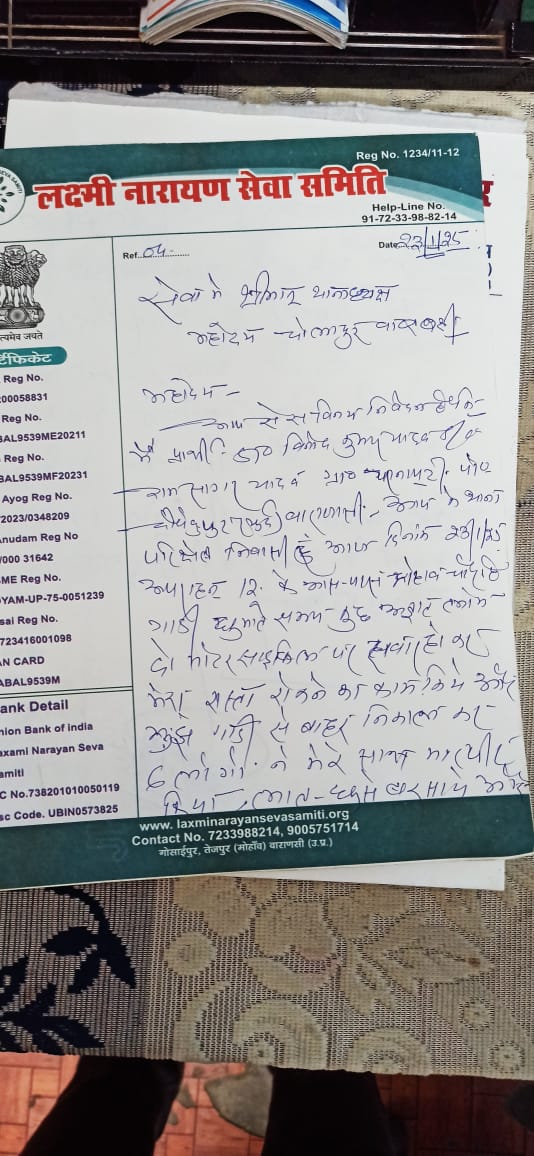 Reg No. 1234/11-12
लक्ष्मी नारायण सेवा समिति
Help-Line No.
91-72-33-98-82-14
Ref. 04
Date 23/1/25
सत्यमेव जयते
र्टिफिकेट
Reg No.
00058831
Reg No.
BAL9539ME20211
Reg No.
BAL9539MF20231
Ayog Reg No.
2023/0348209
Anudam Reg No
/000 31642
ME Reg No.
YAM-UP-75-0051239
sai Reg No.
723416001098
N CARD
ABAL9539M
ank Detail
nion Bank of india
axami Narayan Seva
amiti
C No.738201010050119
sc Code. UBIN0573825
सेवा मे श्रीमान थानाध्यक्ष
महोदय चोलापुर वाराणसी
महोदय -
आप से सविनय निवेदन है कि
मैं प्रार्थी विनोद कुमार यादव
राम सागर यादव ग्राम पोस्ट
वाराणसी आप के थाना
निवासी हूँ आज दिनांक 23/1/25
12 के आस-पास
गाड़ी घुमाते समय कुछ अज्ञात लोग
दो मोटर साइकिल पर सवार हो कर
मेरा रास्ता रोकने का काम किये और
मुझे गाड़ी से बाहर निकाल कर
6 लोगों ने मेरे साथ मारपीट
किया, लात-घूसे बरसाये और
www. laxminarayansevasamiti.org
Contact No. 7233988214, 9005751714
गोसाईपुर, तेजपुर (मोहाँव) वाराणसी (उ.प्र.)